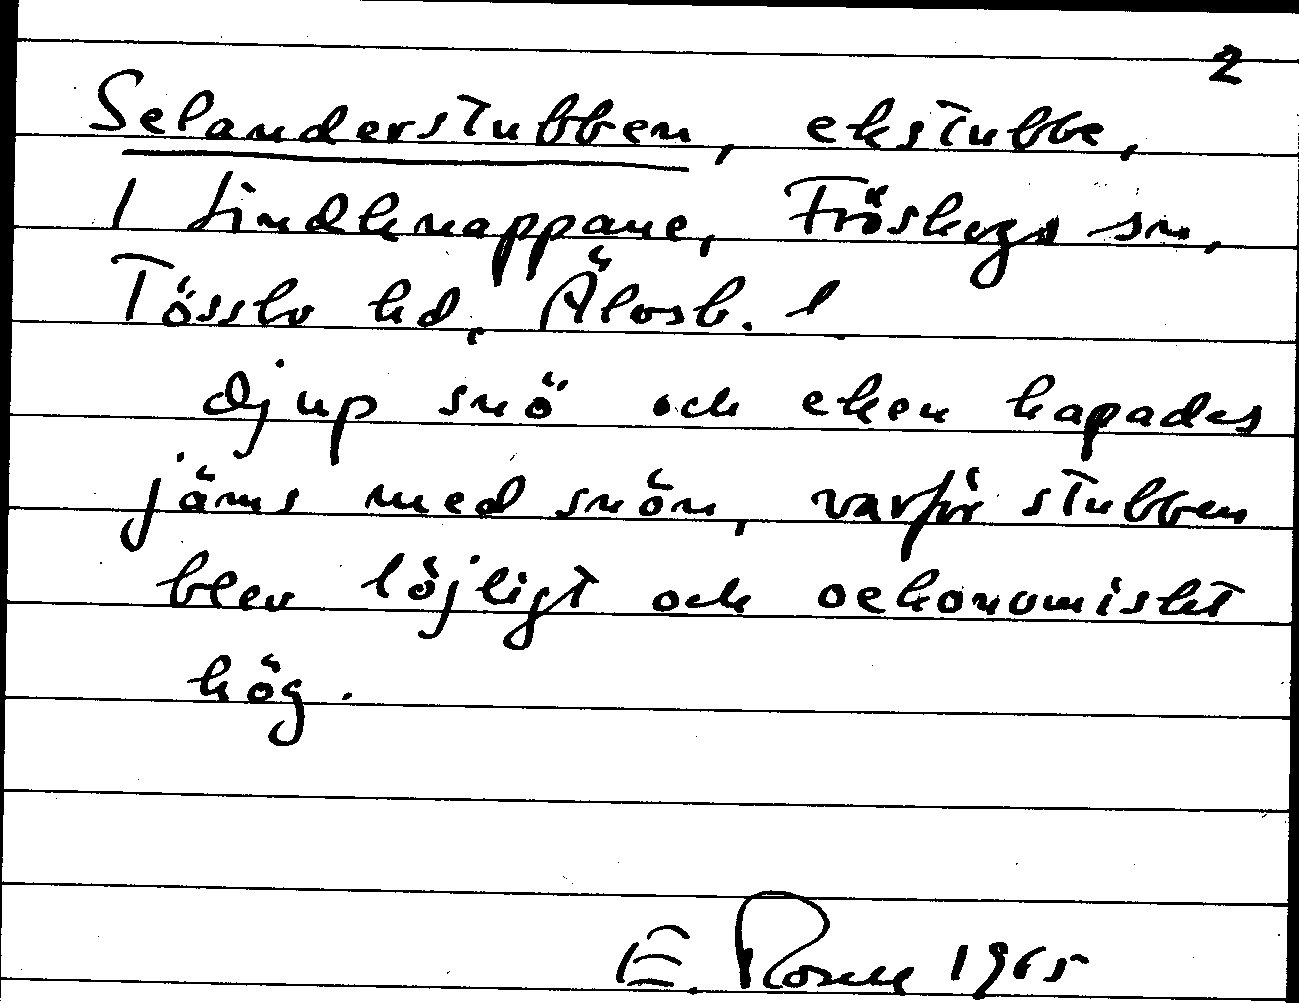 2
Selanderstubben, ekstubbe,
I Lindknappane, Fröskogs sn,
Tössbo hd, Älvsb. l
djup snö och eken kapades
jäms med snön, varför stubben
blev löjligt och oekonomiskt
hög.
E. Rosell 1965